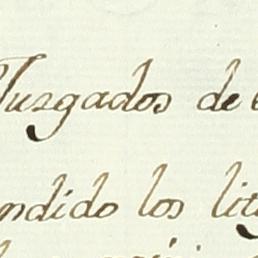 Juzgados de
ndido los lit